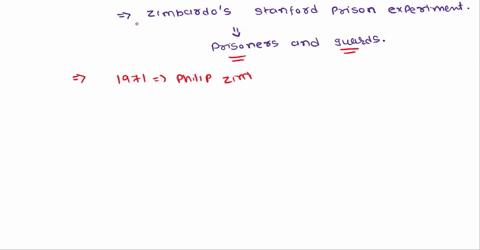 ⇒ Zimbardo's Stanford Prison experiment.
⇓
Prisoners and guards.
⇒ 1971 ⇒ Philip Zim